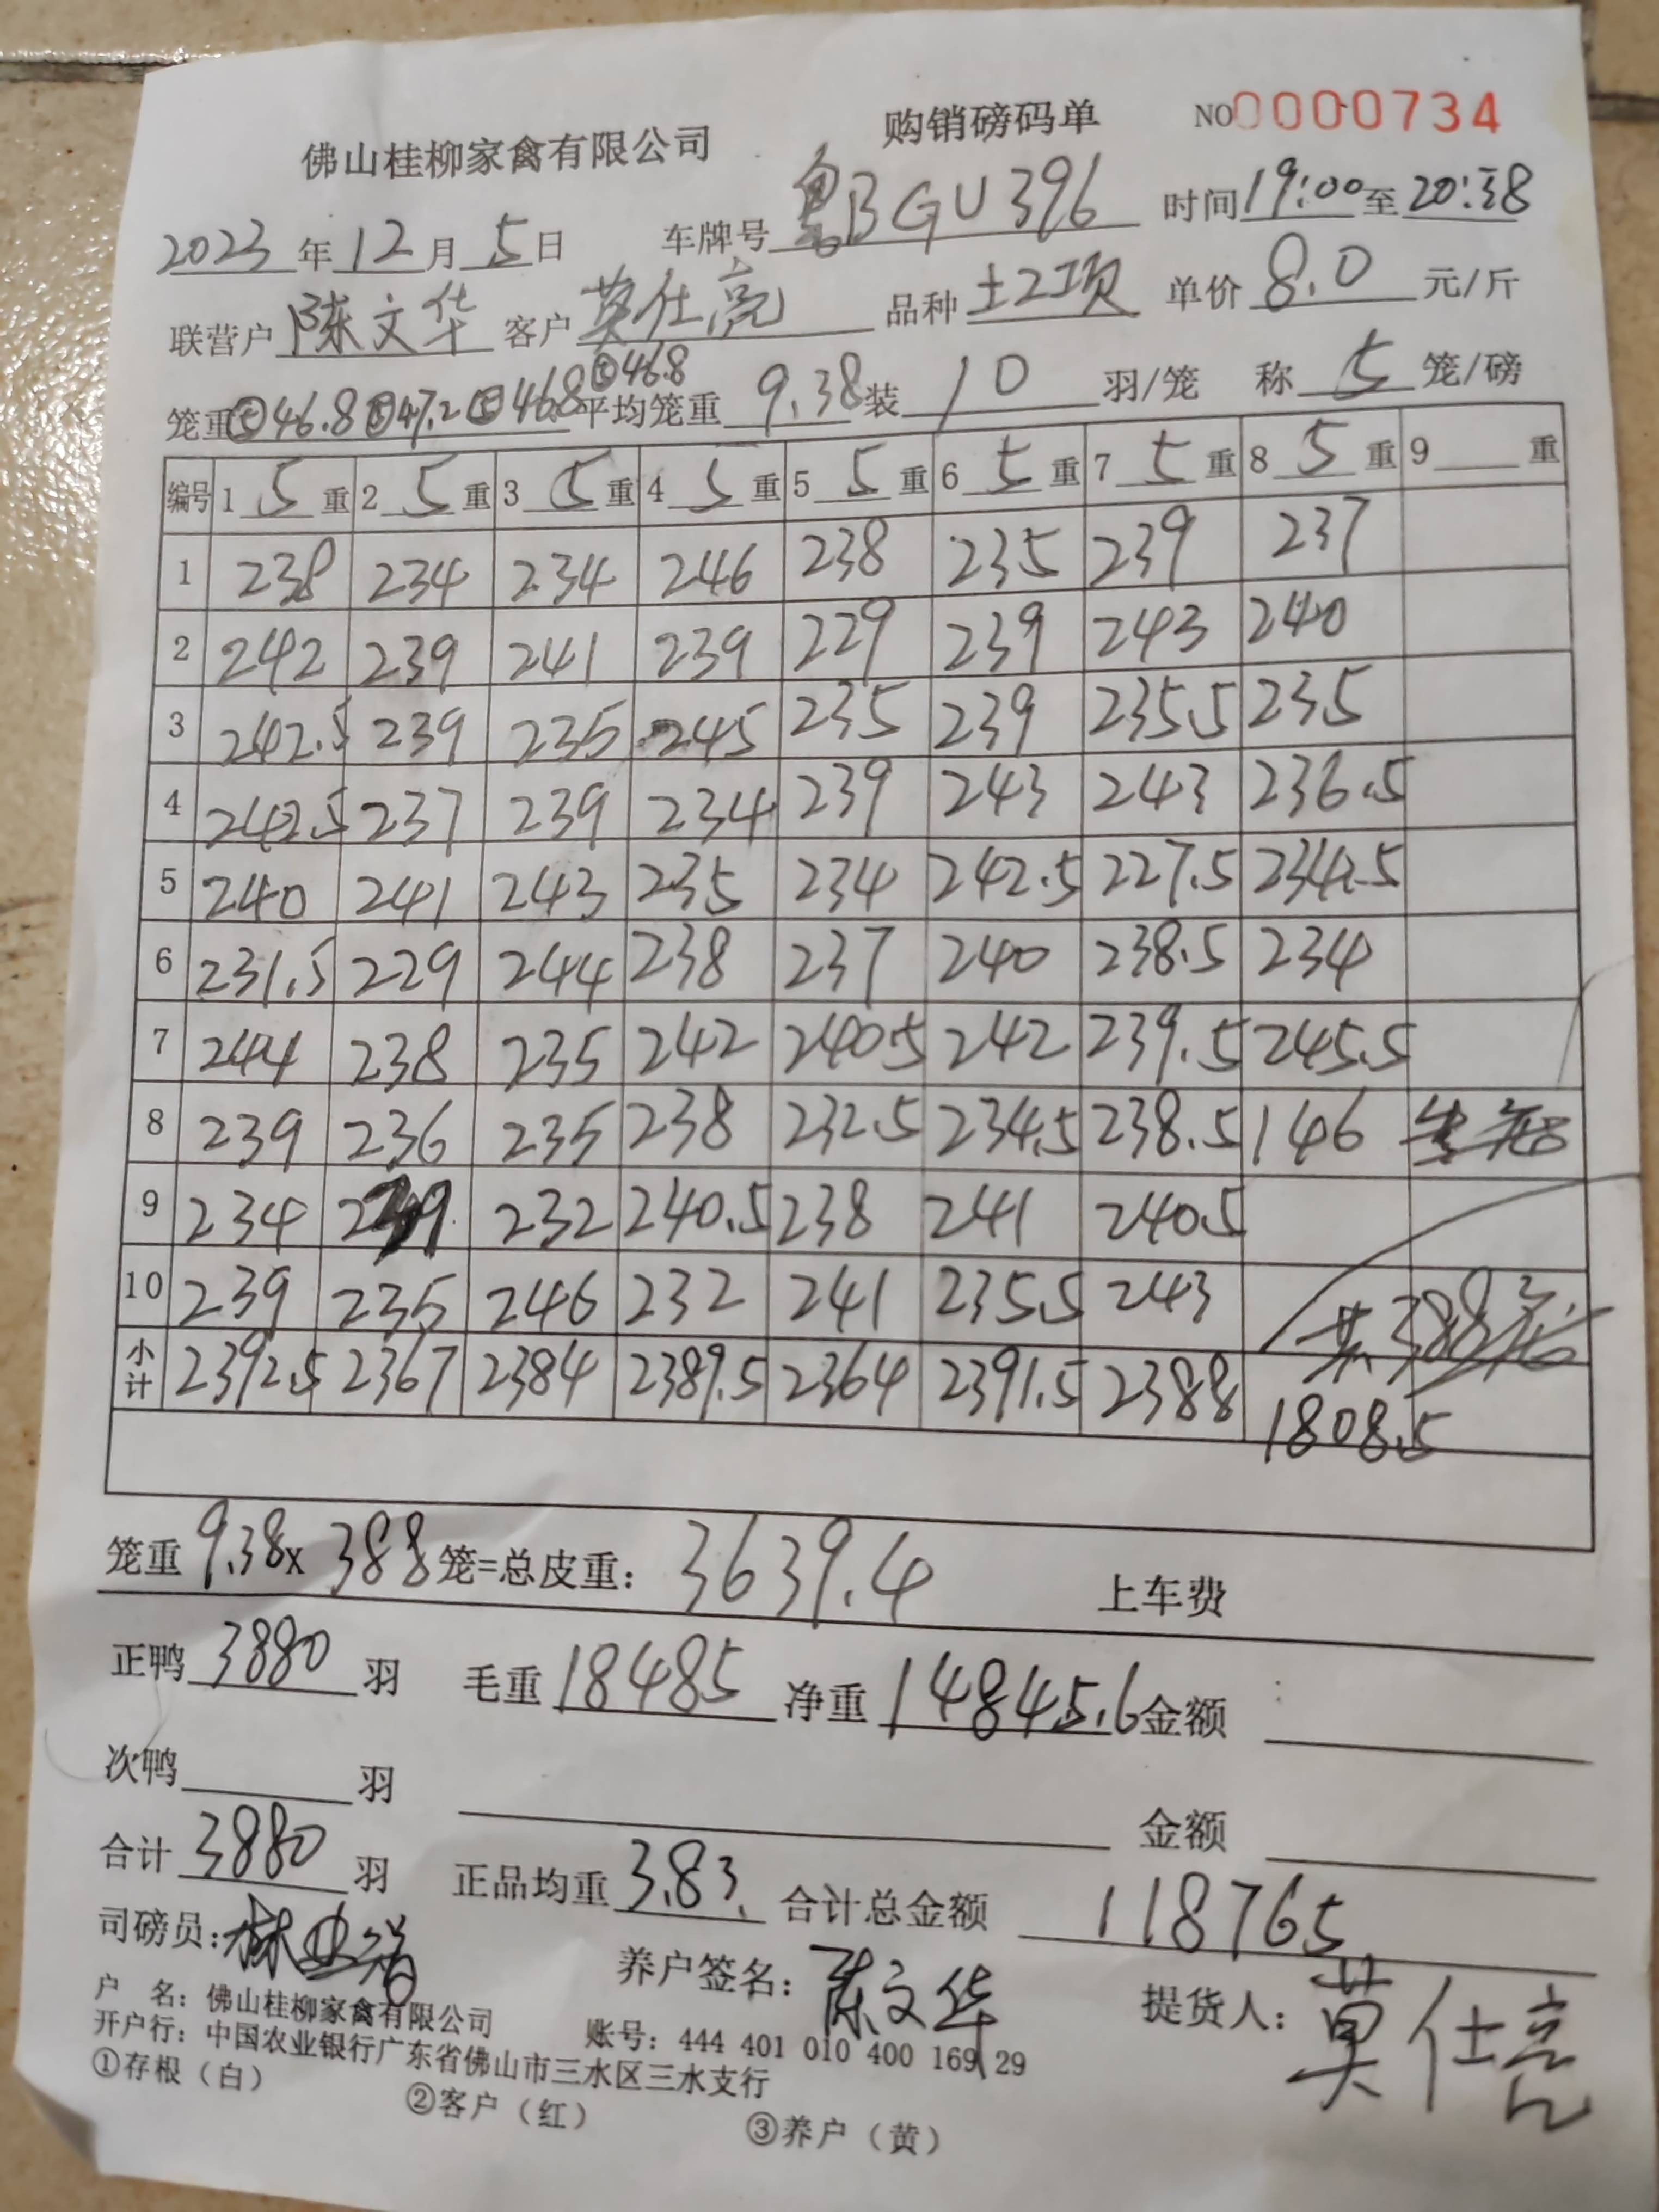 佛山桂柳家禽有限公司 购销磅码单 NO0000734
2023年12月5日 车牌号 粤BGU396 时间19:00至20:38
联营户 陈文华 客户 莫仕亮 品种 土2项 单价 8.0 元/斤
笼重⑤46.8⑤47.2⑤46.8⑤46.8平均笼重 9.38 装 10 羽/笼 称 5 笼/磅
编号 1 5 重 2 5 重 3 5 重 4 5 重 5 5 重 6 5 重 7 5 重 8 5 重 9 重
1 238 234 234 246 238 235 239 237
2 242 239 241 239 229 239 243 240
3 242.5 239 235 245 235 239 235.5 235
4 242.5 237 239 234 239 243 243 236.5
5 240 241 243 235 234 242.5 227.5 234.5
6 231.5 229 244 238 237 240 238.5 234
7 244 238 235 242 240.5 242 239.5 245.5
8 239 236 235 238 232.5 234.5 238.5 146
9 234 239 232 240.5 238 241 240.5
10 239 235 246 232 241 235.5 243 共388笼
小计 2392.5 2367 2384 2389.5 2364 2391.5 2388 1808.5
笼重 9.38x 388 笼=总皮重: 3639.4 上车费
正鸭 3880 羽 毛重 18485 净重 14845.6 金额
次鸭 羽 金额
合计 3880 羽 正品均重 3.83. 合计总金额 118765
司磅员: 养户签名: 陈文华 提货人: 莫仕亮
户 名: 佛山桂柳家禽有限公司 账号: 444 401 010 400 169 29
开户行: 中国农业银行广东省佛山市三水区三水支行
①存根（白） ②客户（红） ③养户（黄）